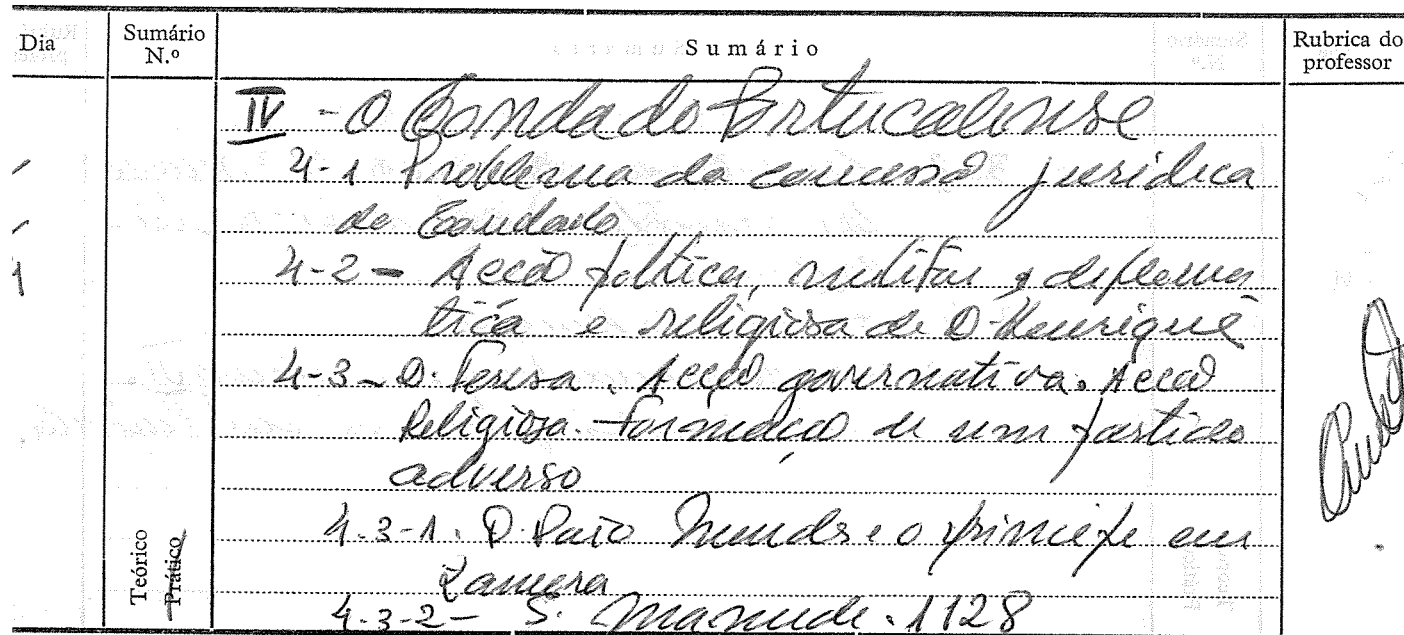 Dia
Sumário
N.º
Sumário
Rubrica do
professor
IV - O Condado Portucalense
4-1 Problema da concessão jurídica
do Condado
4-2 - Acção política, militar, diploma
tica e religiosa de D. Henrique
4-3 - D. Teresa. Acção governativa. Acção
Religiosa. Formação de um partido
adverso
4.3-1. D. Paio Mendes e o príncipe em
Zamora
4.3-2 - S. Mamede. 1128
Teórico
Prático